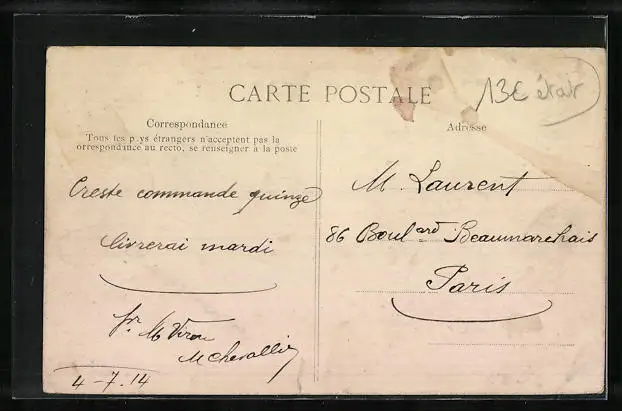 CARTE POSTALE
13€ état
Correspondance
Tous les pays étrangers n'acceptent pas la
correspondance au recto, se renseigner à la poste
Adresse
Creste commande quinze
livrerai mardi
pr M Viron
M Chevallier
4-7.14
M. Laurent
86 Boulard Beaumarchais
Paris